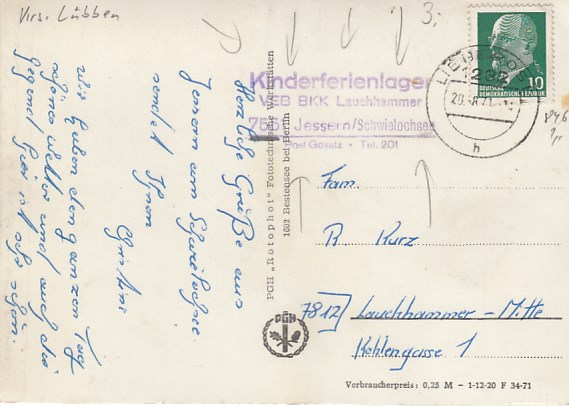 Krs. Lübben
3,
Herzliche Grüße aus
Jessern am Schwielochsee
sendet Ihnen
Christine
Wir haben den ganzen Tag
schönes Wetter und auch die
Gegend hier ist sehr schön.
Kinderferienlager
VEB BKK Lauchhammer
7581 Jessern/Schwielochsee
Post Goyatz • Tel. 201
LIEBEROSE
20.-8.71.
h
10
DEUTSCHE
DEMOKRATISCHE REPUBLIK
846
1,-
PGH „Rotophot" Fototechnische Werkstätten
1602 Bestensee bei Berlin
PGH
Fam.
R. Kurz
7812 Lauchhammer - Mitte
Kohlengasse 1
Verbraucherpreis: 0,25 M - 1-12-20 F 34-71